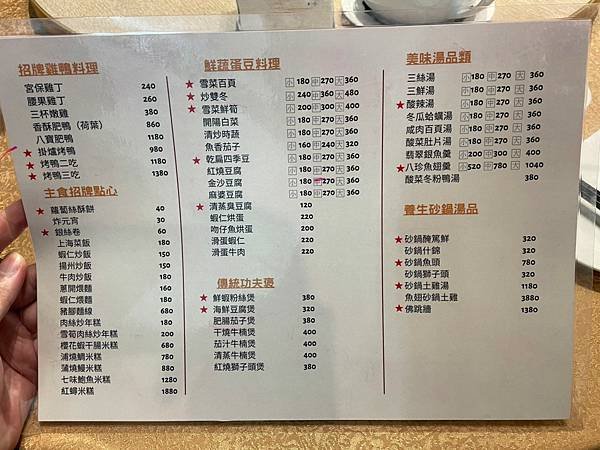 招牌雞鴨料理
宮保雞丁 240
腰果雞丁 260
三杯嫩雞 380
香酥肥鴨（荷葉） 860
八寶肥鴨 1180
★ 掛爐烤鴨 980
★ 烤鴨二吃 1180
★ 烤鴨三吃 1380
主食招牌點心
★ 蘿蔔絲酥餅 40
炸元宵 30
★ 銀絲卷 60
上海菜飯 180
蝦仁炒飯 150
揚州炒飯 150
牛肉炒飯 160
蔥開煨麵 160
蝦仁煨麵 180
豬腳麵線 580
肉絲炒年糕 180
雪筍肉絲炒年糕 200
櫻花蝦干腸米糕 660
浦燒鯛米糕 780
蒲燒鰻米糕 880
七味鮑魚米糕 1280
紅蟳米糕 1880
鮮蔬蛋豆料理
★ 雪菜百頁 小180 中270 大360
★ 炒雙冬 小240 中360 大480
★ 雪菜鮮筍 小200 中300 大400
開陽白菜 小180 中270 大360
清炒時蔬 小180 中270 大360
魚香茄子 小160 中240 大320
★ 乾扁四季豆 小180 中270 大360
紅燒豆腐 小180 中270 大360
金沙豆腐 小180 270 大360
麻婆豆腐 小180 中270 大360
★ 清蒸臭豆腐 120
蝦仁烘蛋 220
吻仔魚烘蛋 220
滑蛋蝦仁 220
滑蛋牛肉 220
傳統功夫煲
★ 鮮蝦粉絲煲 380
★ 海鮮豆腐煲 380
肥腸茄子煲 380
干燒牛楠煲 400
茄汁牛楠煲 400
清蒸牛楠煲 400
紅燒獅子頭煲 380
美味湯品類
三絲湯 小180 中270 大 360
三鮮湯 小180 中270 大 360
★ 酸辣湯 小180 中270 大 360
冬瓜蛤蠣湯 小180 中270 大 360
咸肉百頁湯 小180 中270 大 360
酸菜肚片湯 小180 中270 大 360
翡翠銀魚羹 小200 中300 大 400
★ 八珍魚翅羹 小520 中780 大 1040
酸菜冬粉鴨湯 380
養生砂鍋湯品
★ 砂鍋醃篤鮮 320
砂鍋什錦 320
★ 砂鍋魚頭 780
砂鍋獅子頭 320
★ 砂鍋土雞湯 1180
魚翅砂鍋土雞 3880
★ 佛跳牆 1380